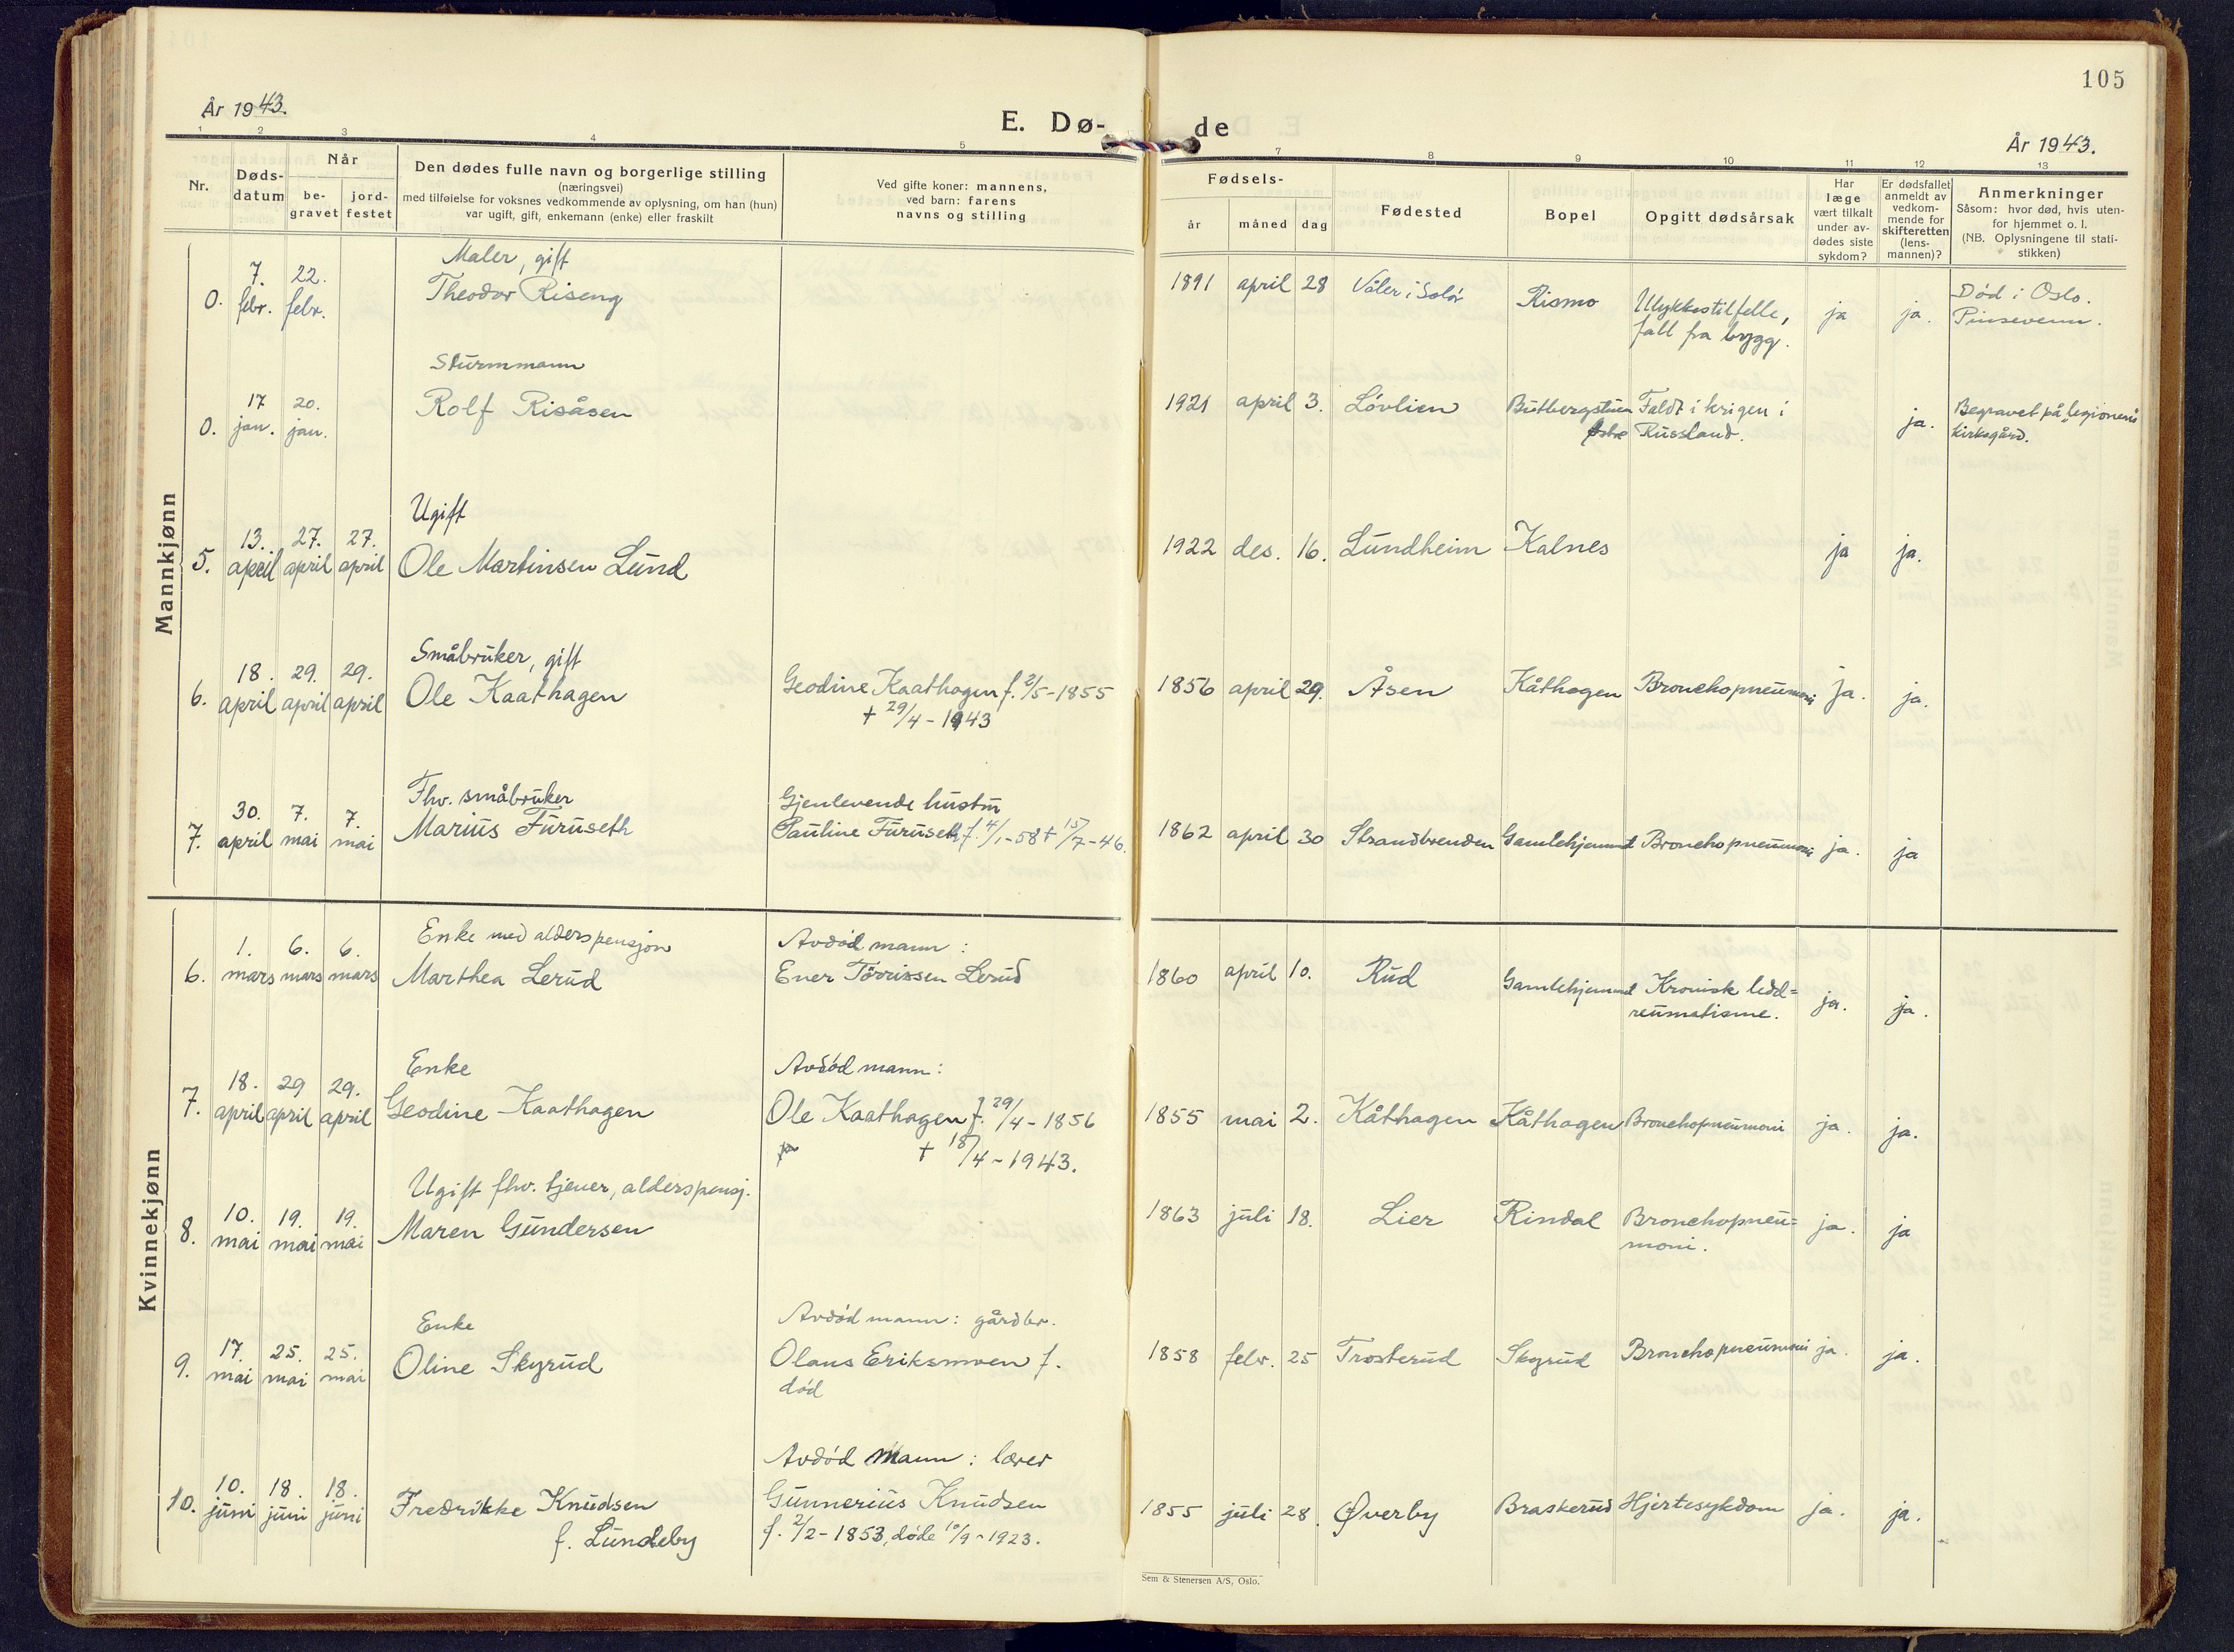 105
År 1943.
E. Dø-
de
År 1943.
1 2 3 4 5 7 8 9 10 11 12 13
Nr.
Døds-
datum
Når
be-
gravet
jord-
festet
Den dødes fulle navn og borgerlige stilling
(næringsvei)
med tilføielse for voksnes vedkommende av oplysning, om han (hun)
var ugift, gift, enkemann (enke) eller fraskilt
Ved gifte koner: mannens,
ved barn: farens
navns og stilling
Fødsels-
år måned dag
Fødested
Bopel
Opgitt dødsårsak
Har
læge
vært tilkalt
under av-
dødes siste
sykdom?
Er dødsfallet
anmeldt av
vedkom-
mende for
skifteretten
(lens-
mannen)?
Anmerkninger
Såsom: hvor død, hvis uten-
for hjemmet o. l.
(NB. Oplysningene til stati-
stikken)
Mannkjønn
Maler, gift
0. 7. febr. 22. febr. Theodor Riseng 1891 april 28 Våler i Solør Rismo Ulykkestilfelle, ja ja. Død i Oslo.
fall fra bygg. Pinsevenn.
Sturmmann
0. 17 jan. 20. jan. Rolf Risåsen 1921 april 3. Løvlien Butbergstuen Faldt i krigen i ja. Begravet på "legionens
østre Russland. kirkegård.
Ugift
5. 13. april 27. april 27. april Ole Martinsen Lund 1922 des. 16. Lundheim Kalnes ja ja.
Småbruker, gift
6. 18. april 29. april 29. april Ole Kaathagen Geodine Kaathagen f. 2/5-1855 1856 april 29. Åsen Kåthagen Bronchopneumoni ja. ja.
+ 29/4-1943
Fhv. småbruker Gjenlevende hustru
7. 30. april 7. mai 7. mai Marius Furuseth Pauline Furuseth f. 4/1-58 + 15/7-46. 1862 april 30 Strandbrenden Gamlehjemmet Bronchopneumoni ja. ja
Kvinnekjønn
Enke med alderspensjon Avdød mann:
6. 1. mars 6. mars 6. mars Marthea Lerud Ener Tørrissen Lerud 1860 april 10. Rud Gamlehjemmet Kronisk ledd= ja. ja.
reumatisme.
Enke Avdød mann:
7. 18. april 29 april 29. april Geodine Kaathagen Ole Kaathagen f. 29/4-1856 1855 mai 2. Kåthagen Kåthagen Bronchopneumoni ja. ja.
+ 18/4-1943.
Ugift fhv. tjener, alderspensj.
8. 10. mai 19. mai 19. mai Maren Gundersen 1863 juli 18. Lier Rindal Bronchopneu= ja. ja
moni.
Enke Avdød mann: gårdbr.
9. 17. mai 25. mai 25. mai Oline Skyrud Olaus Eriksmoen f. 1858 febr. 25 Trosterud Skyrud Bronchopneumoni ja. ja.
død
Avdød mann: lærer
10. 10. juni 18. juni 18. juni Fredrikke Knudsen Gunnerius Knudsen 1855 juli 28. Øverby Braskerud Hjertesykdom ja. ja.
f. Lundeby f. 2/2-1853, døde 10/9-1923.
Sem & Stenersen A/S, Oslo.